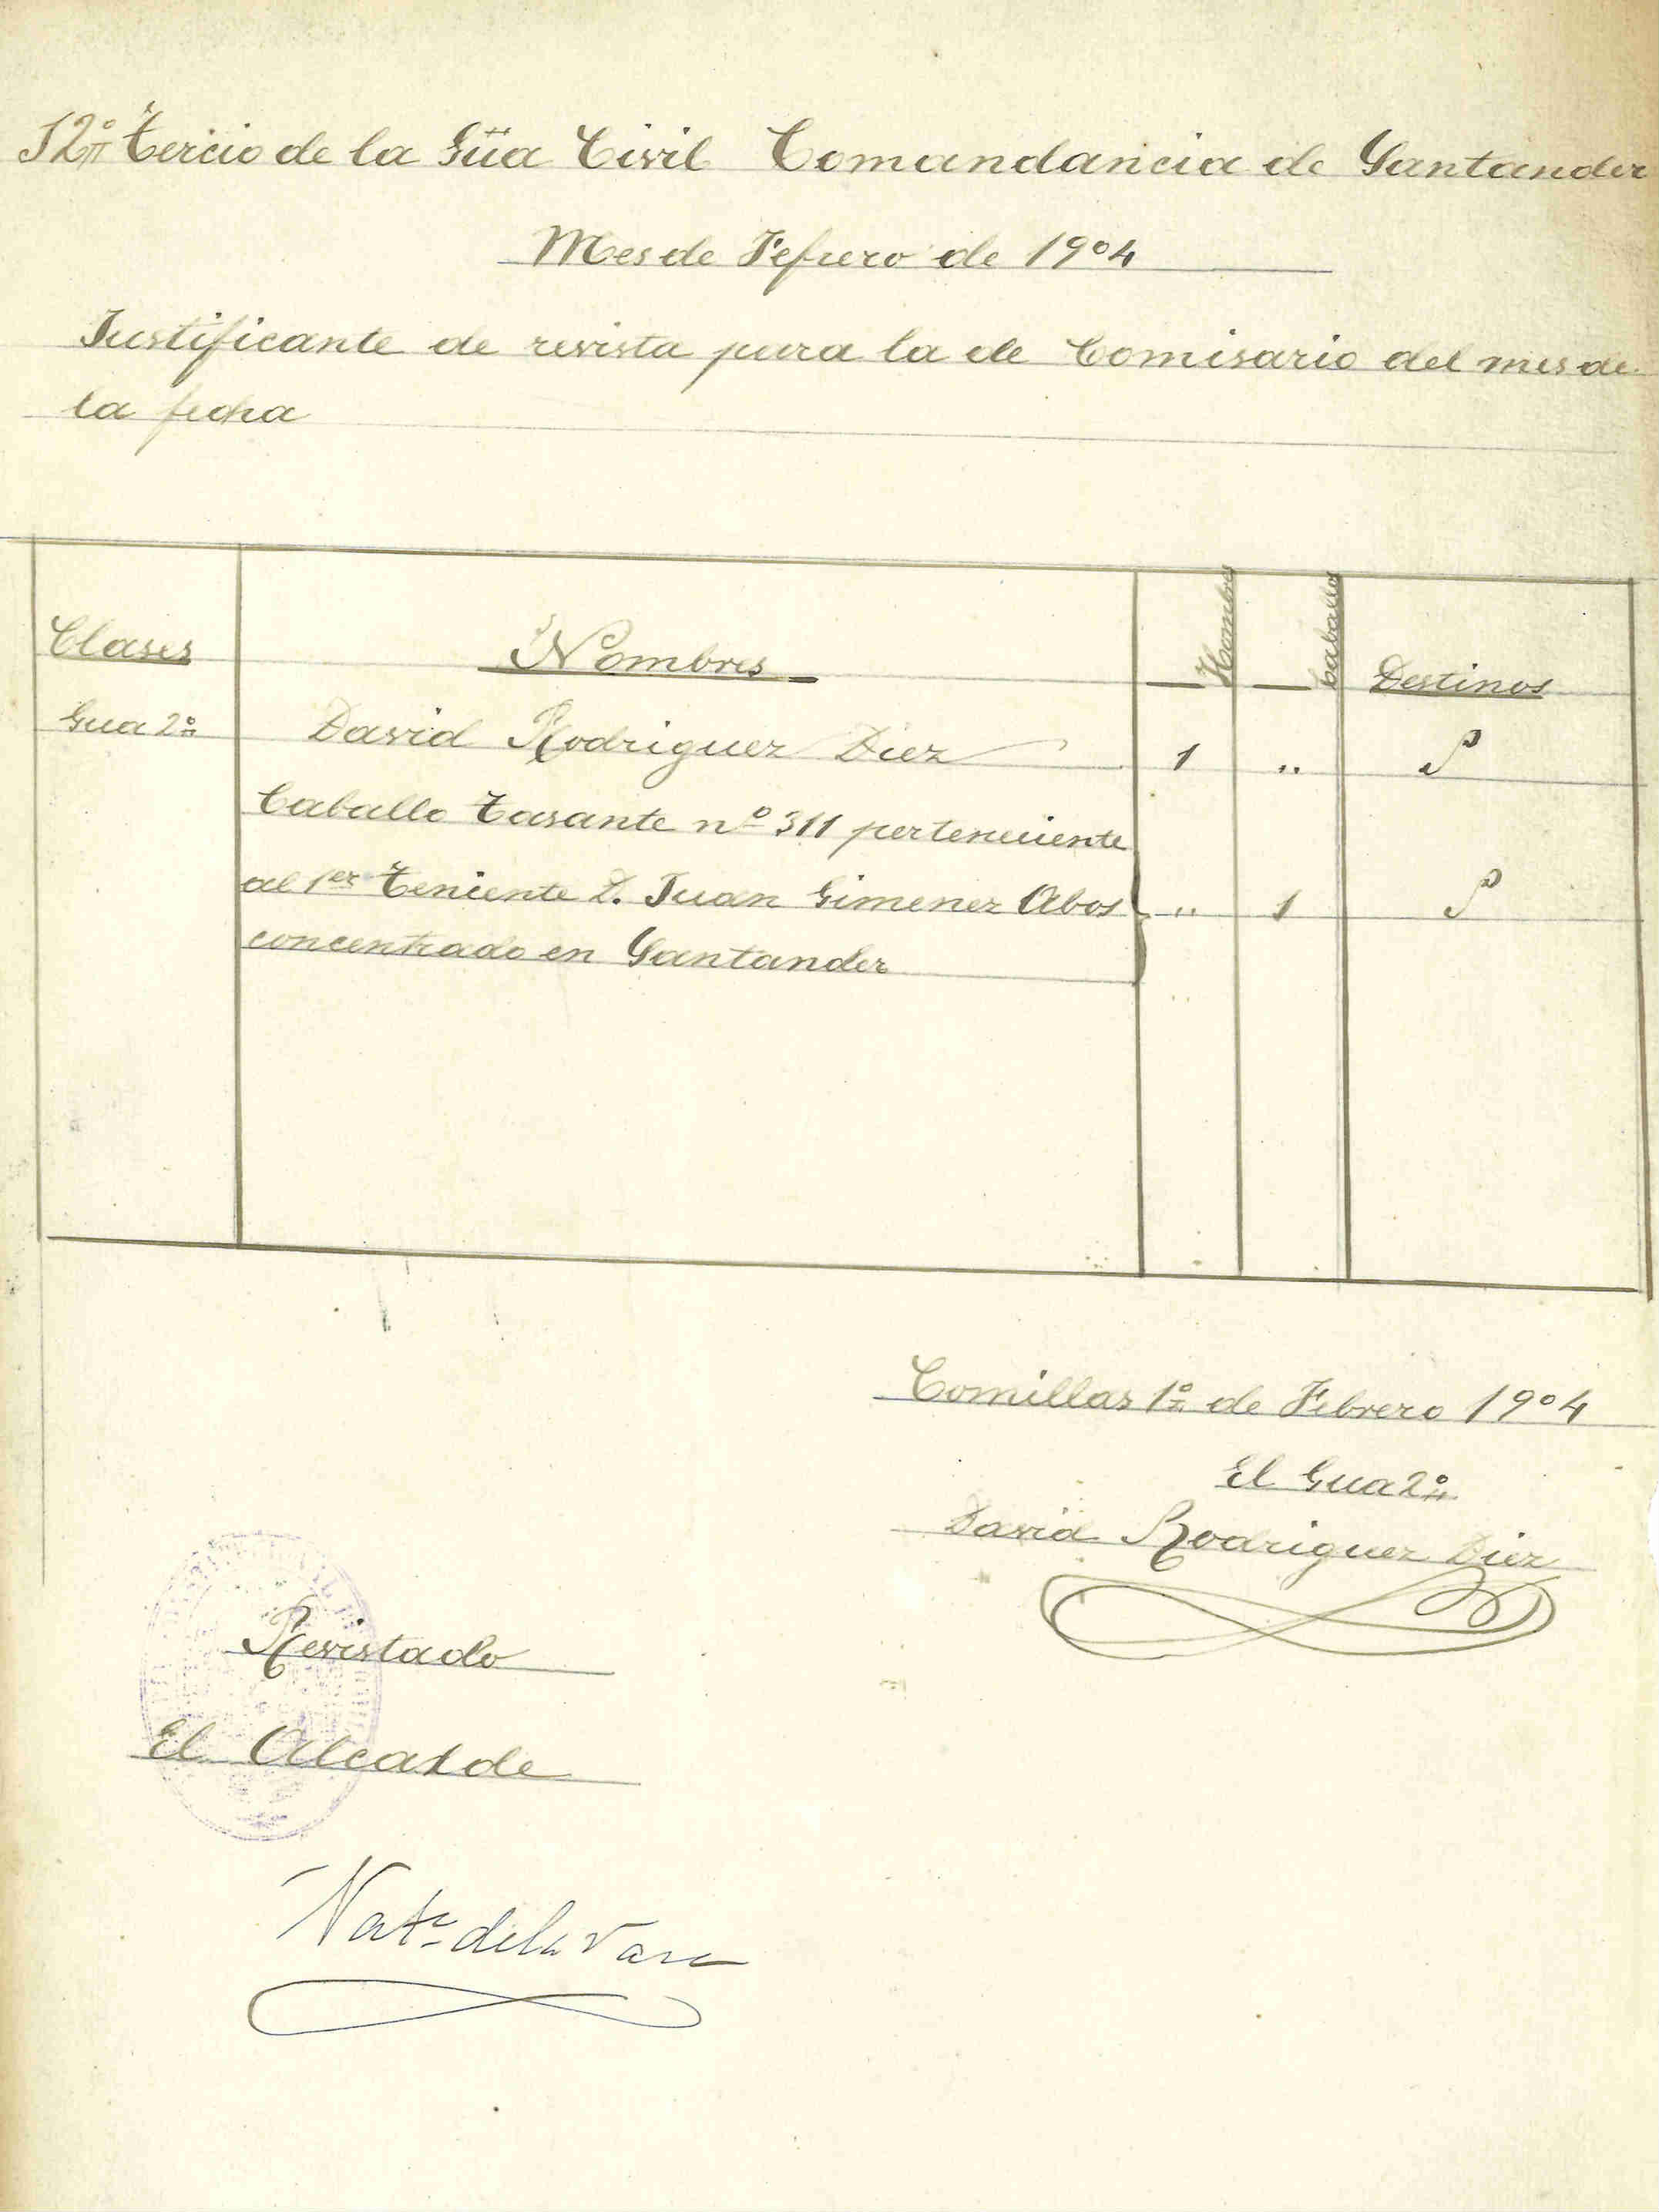 12º Tercio de la Güa Civil Comandancia de Santander
Mes de Fefrero de 1904
Justificante de revista para la de Comisario del mes de
la fecha
Clases Nombres Hombres Caballos Destinos
Gua 2º David Rodriguez Diez 1 " P
Caballo Tasante nº 311 perteneciente
al 1er Teniente D. Juan Gimenez Abos " 1 P
concentrado en Santander
Comillas 1º de Febrero 1904
El Gua 2º
David Rodriguez Diez
Revistado
El Alcalde
de la